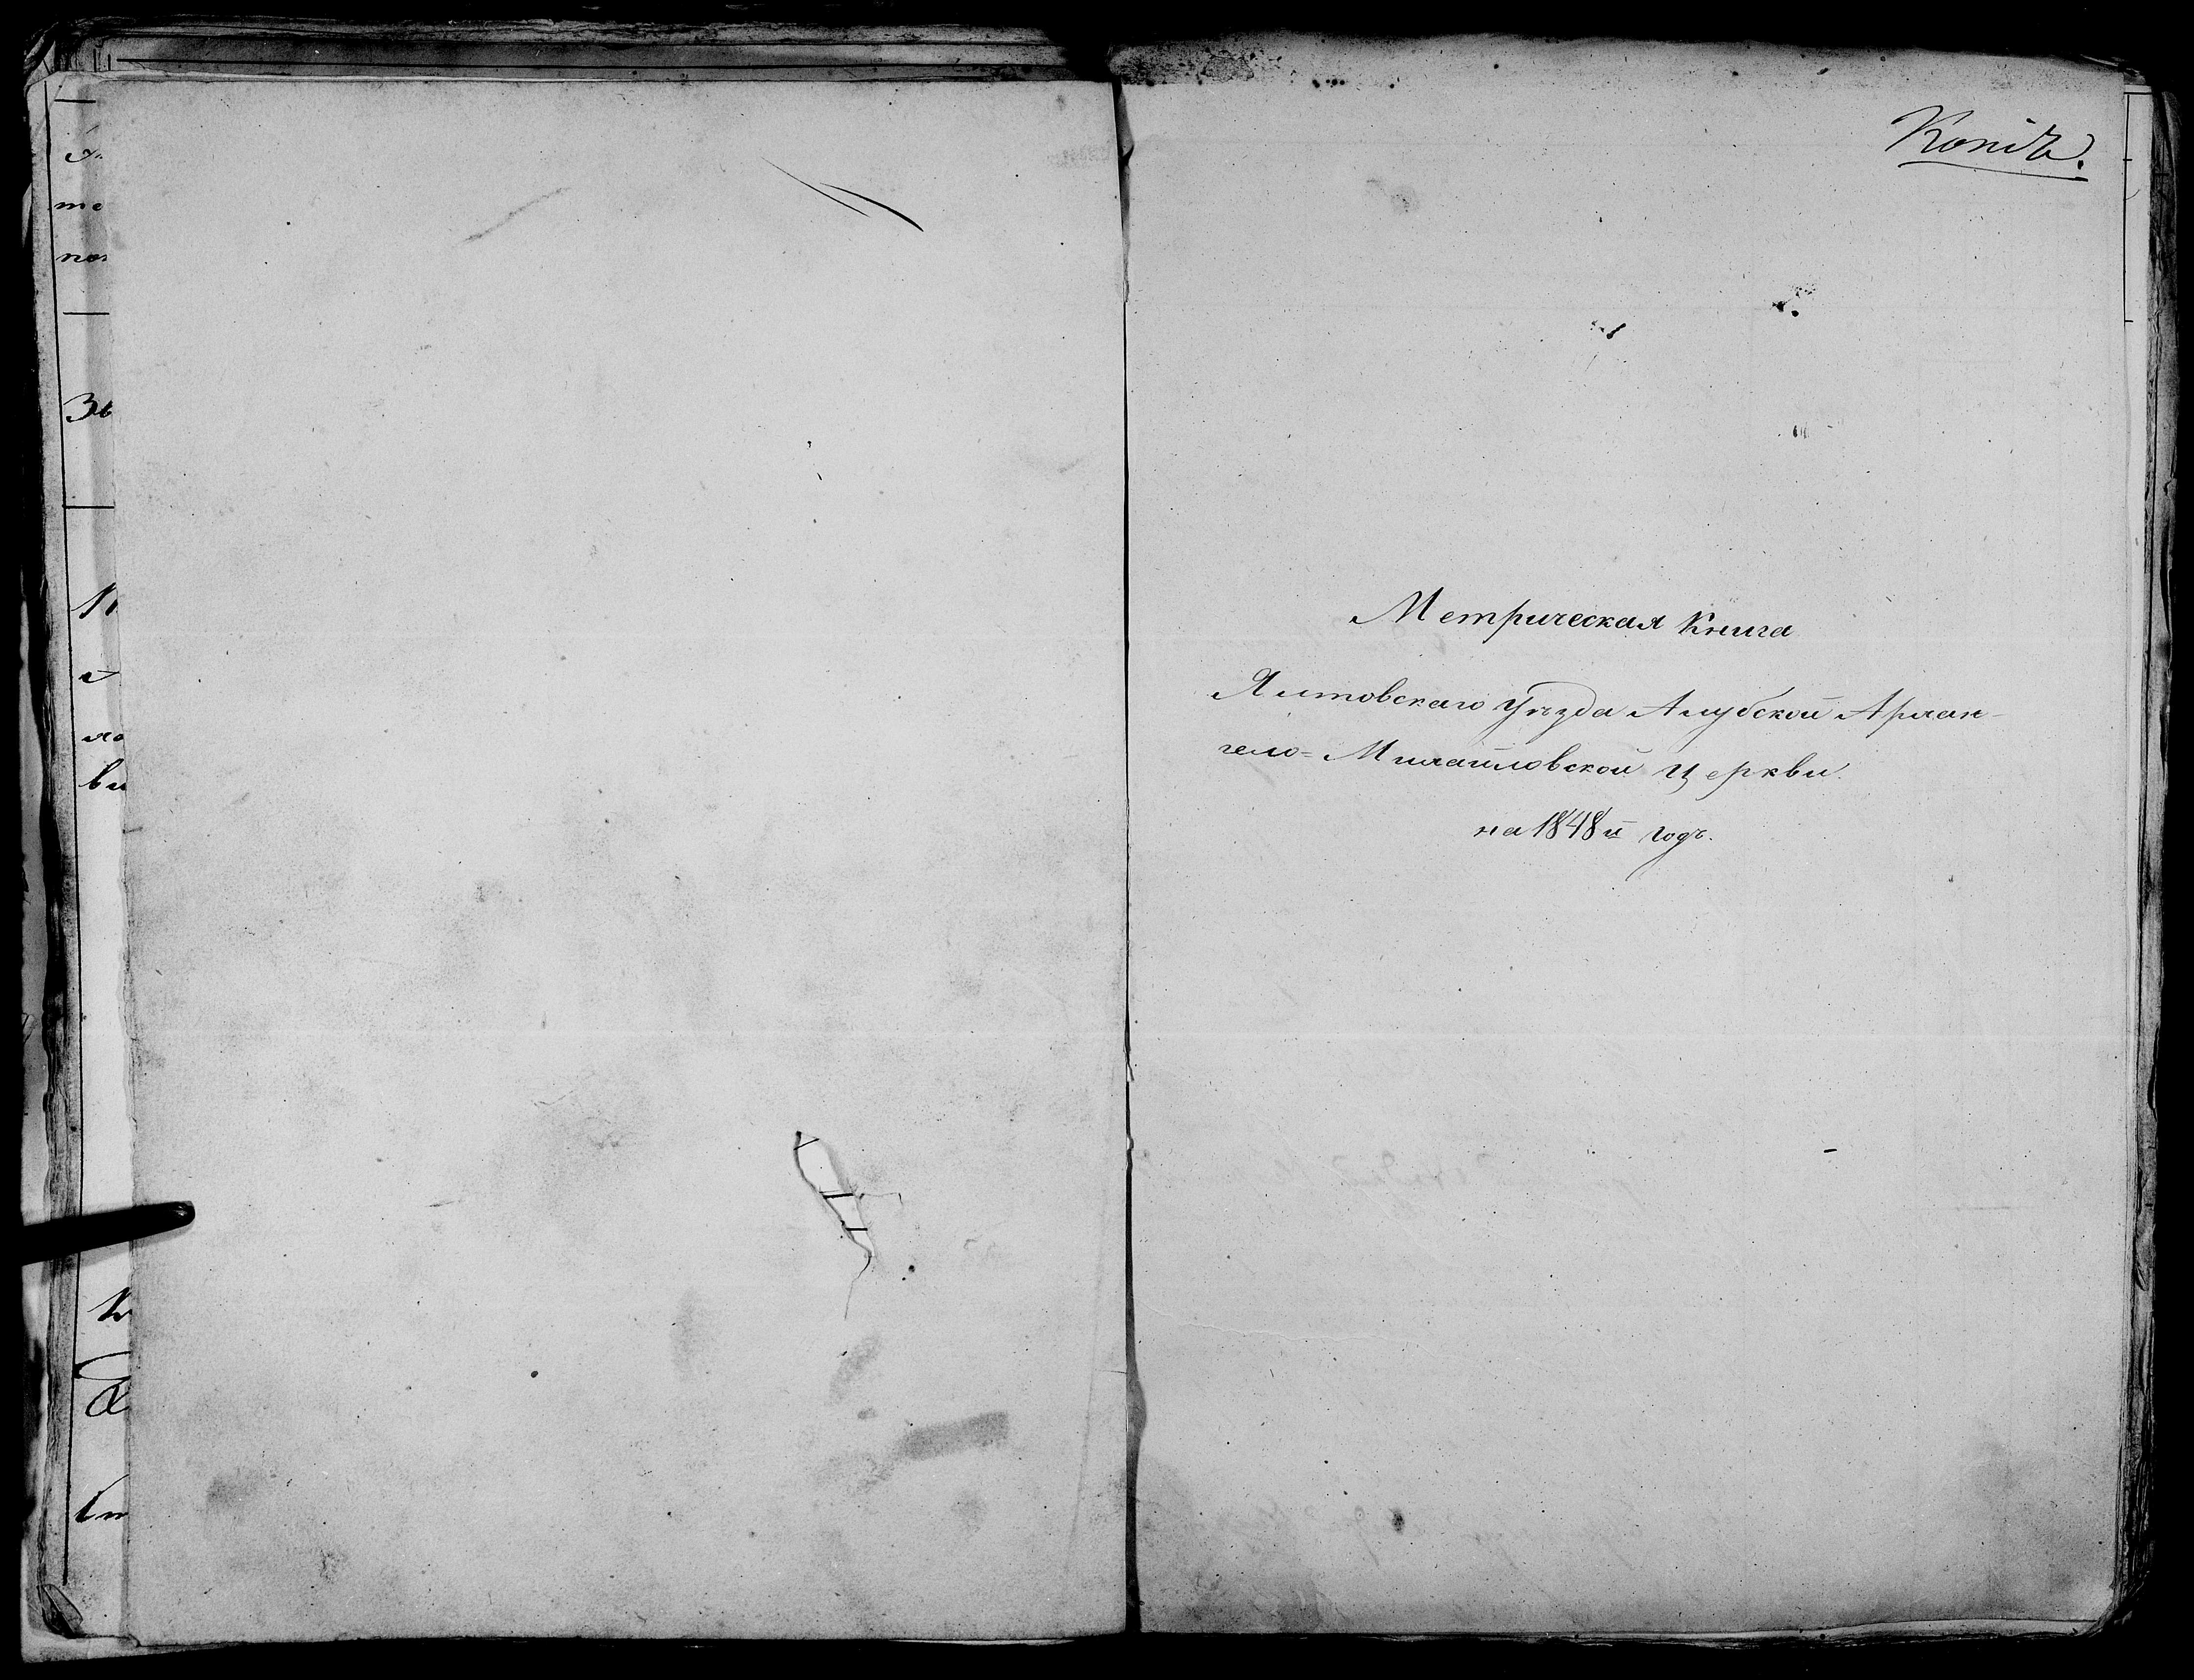 Копія.
Метрическая Книга
Ялтовскаго Уѣзда Алубской Архан-
гело=Михайловской Церкви.
на 1848й годъ.